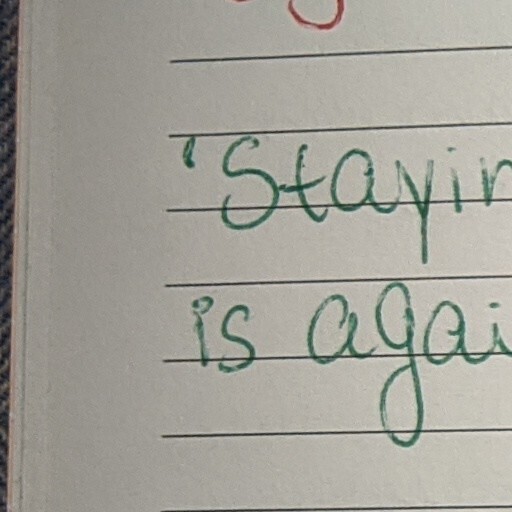 'Stayin
is agai